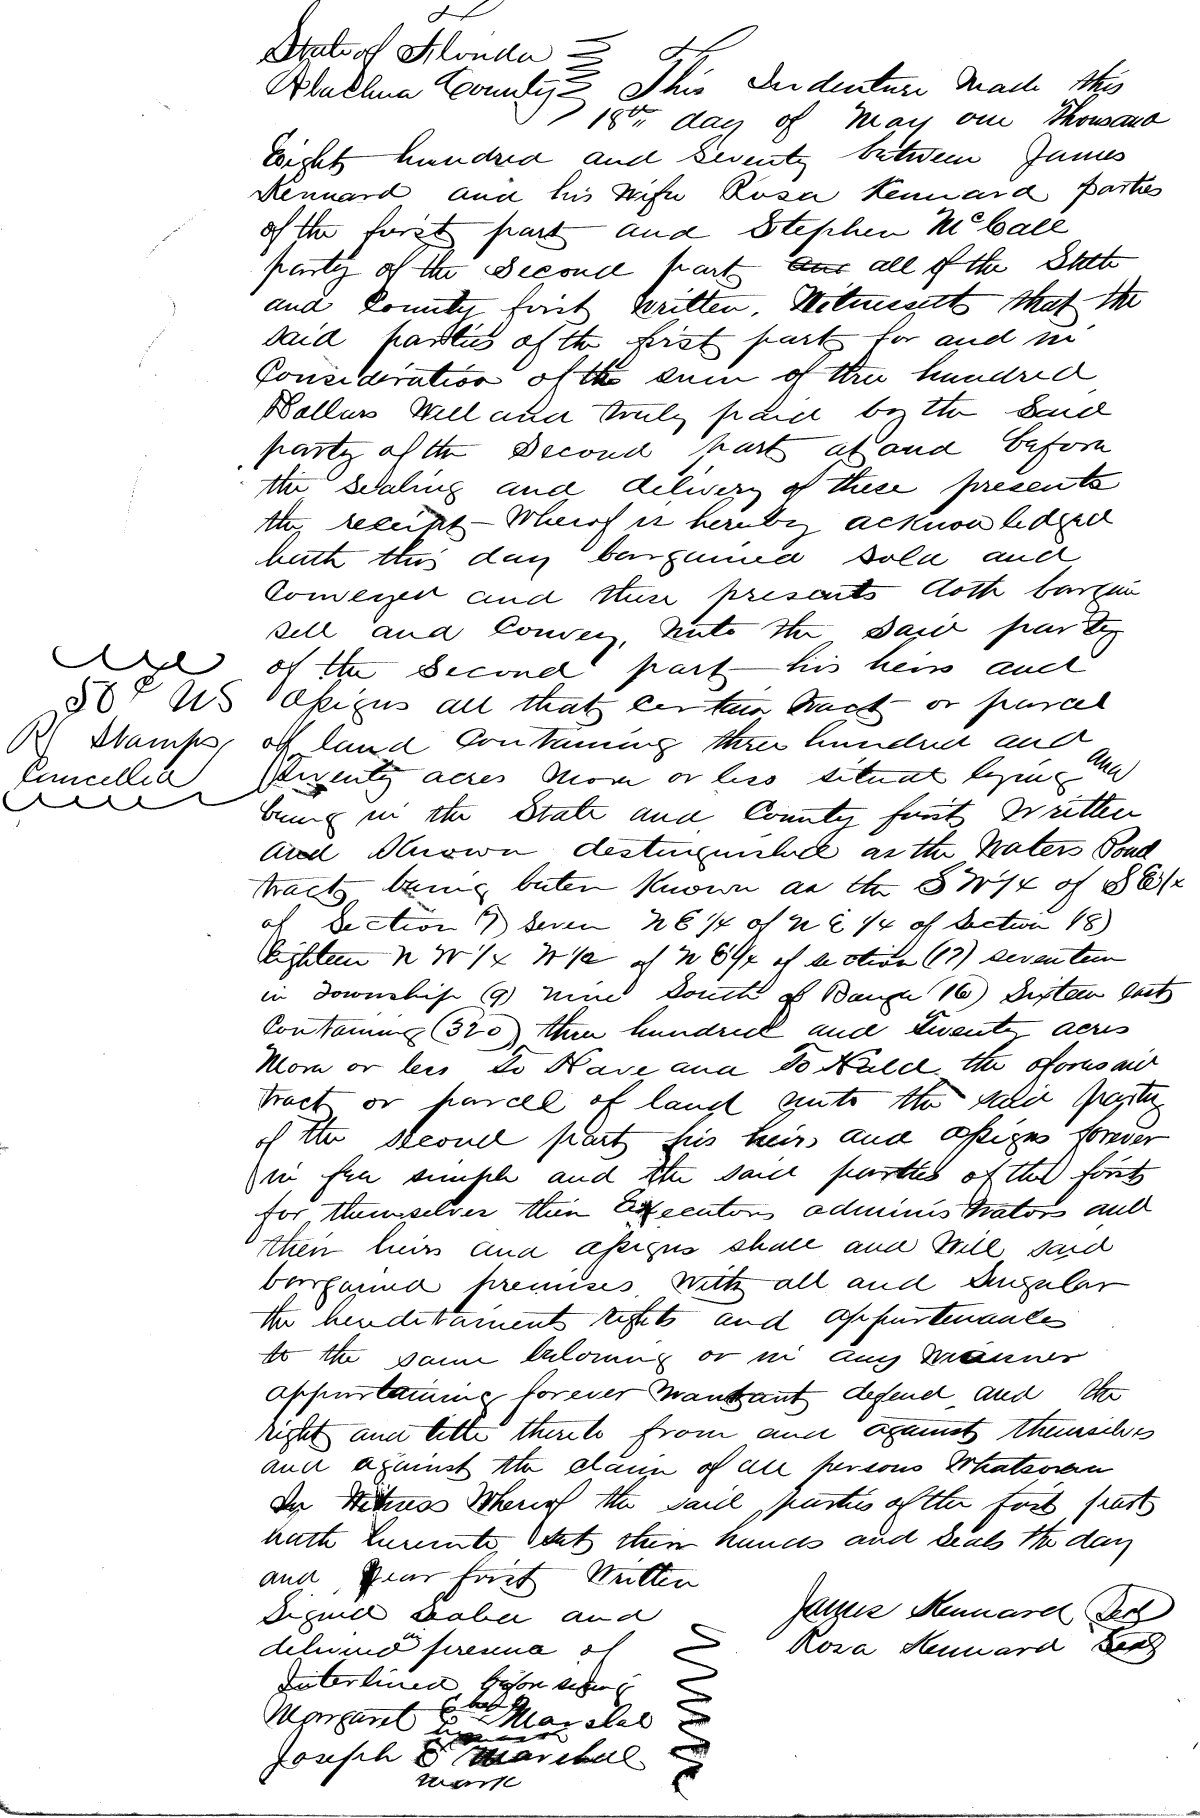 State of Florida
Alachua County This Indenture Made this
18th day of May one Thousand
Eight hundred and Seventy between James
Kennard and his Wife Rosa Kennard parties
of the first part and Stephen McCall
party of the Second part and all of the State
and County first written, Witnesseth that the
said parties of the first part for and in
Consideration of the sum of three hundred
Dollars Well and truly paid by the Said
party of the Second part at and before
the sealing and delivery of these presents
the receipt Whereof is hereby acknowledged
hath this day bargained sold and
Conveyed and these presents doth bargain
sell and Convey, unto the said party
of the Second part his heirs and
50c US assigns all that certain tract or parcel
R Stamps, of land Containing three hundred and
Cancelled Twenty acres More or less situat lying and
being in the State and County first Written
and Known destinguished as the Waters Pond
tract being beter Known as the S W 1/4 of S E 1/4
of Section 7) seven N E 1/4 of N E 1/4 of Section 18)
Eighteen N W 1/4 W 1/2 of N E 1/4 of section (17) seventeen
in Township (9) nine South of Range (16) Sixteen east
Containing (320) three hundred and Twenty acres
More or less To Have and To Hold the aforesaid
tract or parcel of land unto the said party
of the second part his heirs and assigns forever
in fee simple and the said parties of the first
for themselves their Executors administrators and
their heirs and assigns shall and Will said
bargained premises With all and Singular
the hereditaments rights and appurtenances
to the same beloning or in any Manner
appurtaining forever Warrant defend and the
right and title thereto from and against themselves
and against the claim of all persons Whatsoever
In Witness Whereof the said parties of the first part
hath hereunto set their hands and Seals the day
and year first Written
Signed Sealed and James Kennard Seal
delivered in presence of Rosa Kennard Seal
Interlined before signing
Margaret E Marshal
Joseph Marshal
mark